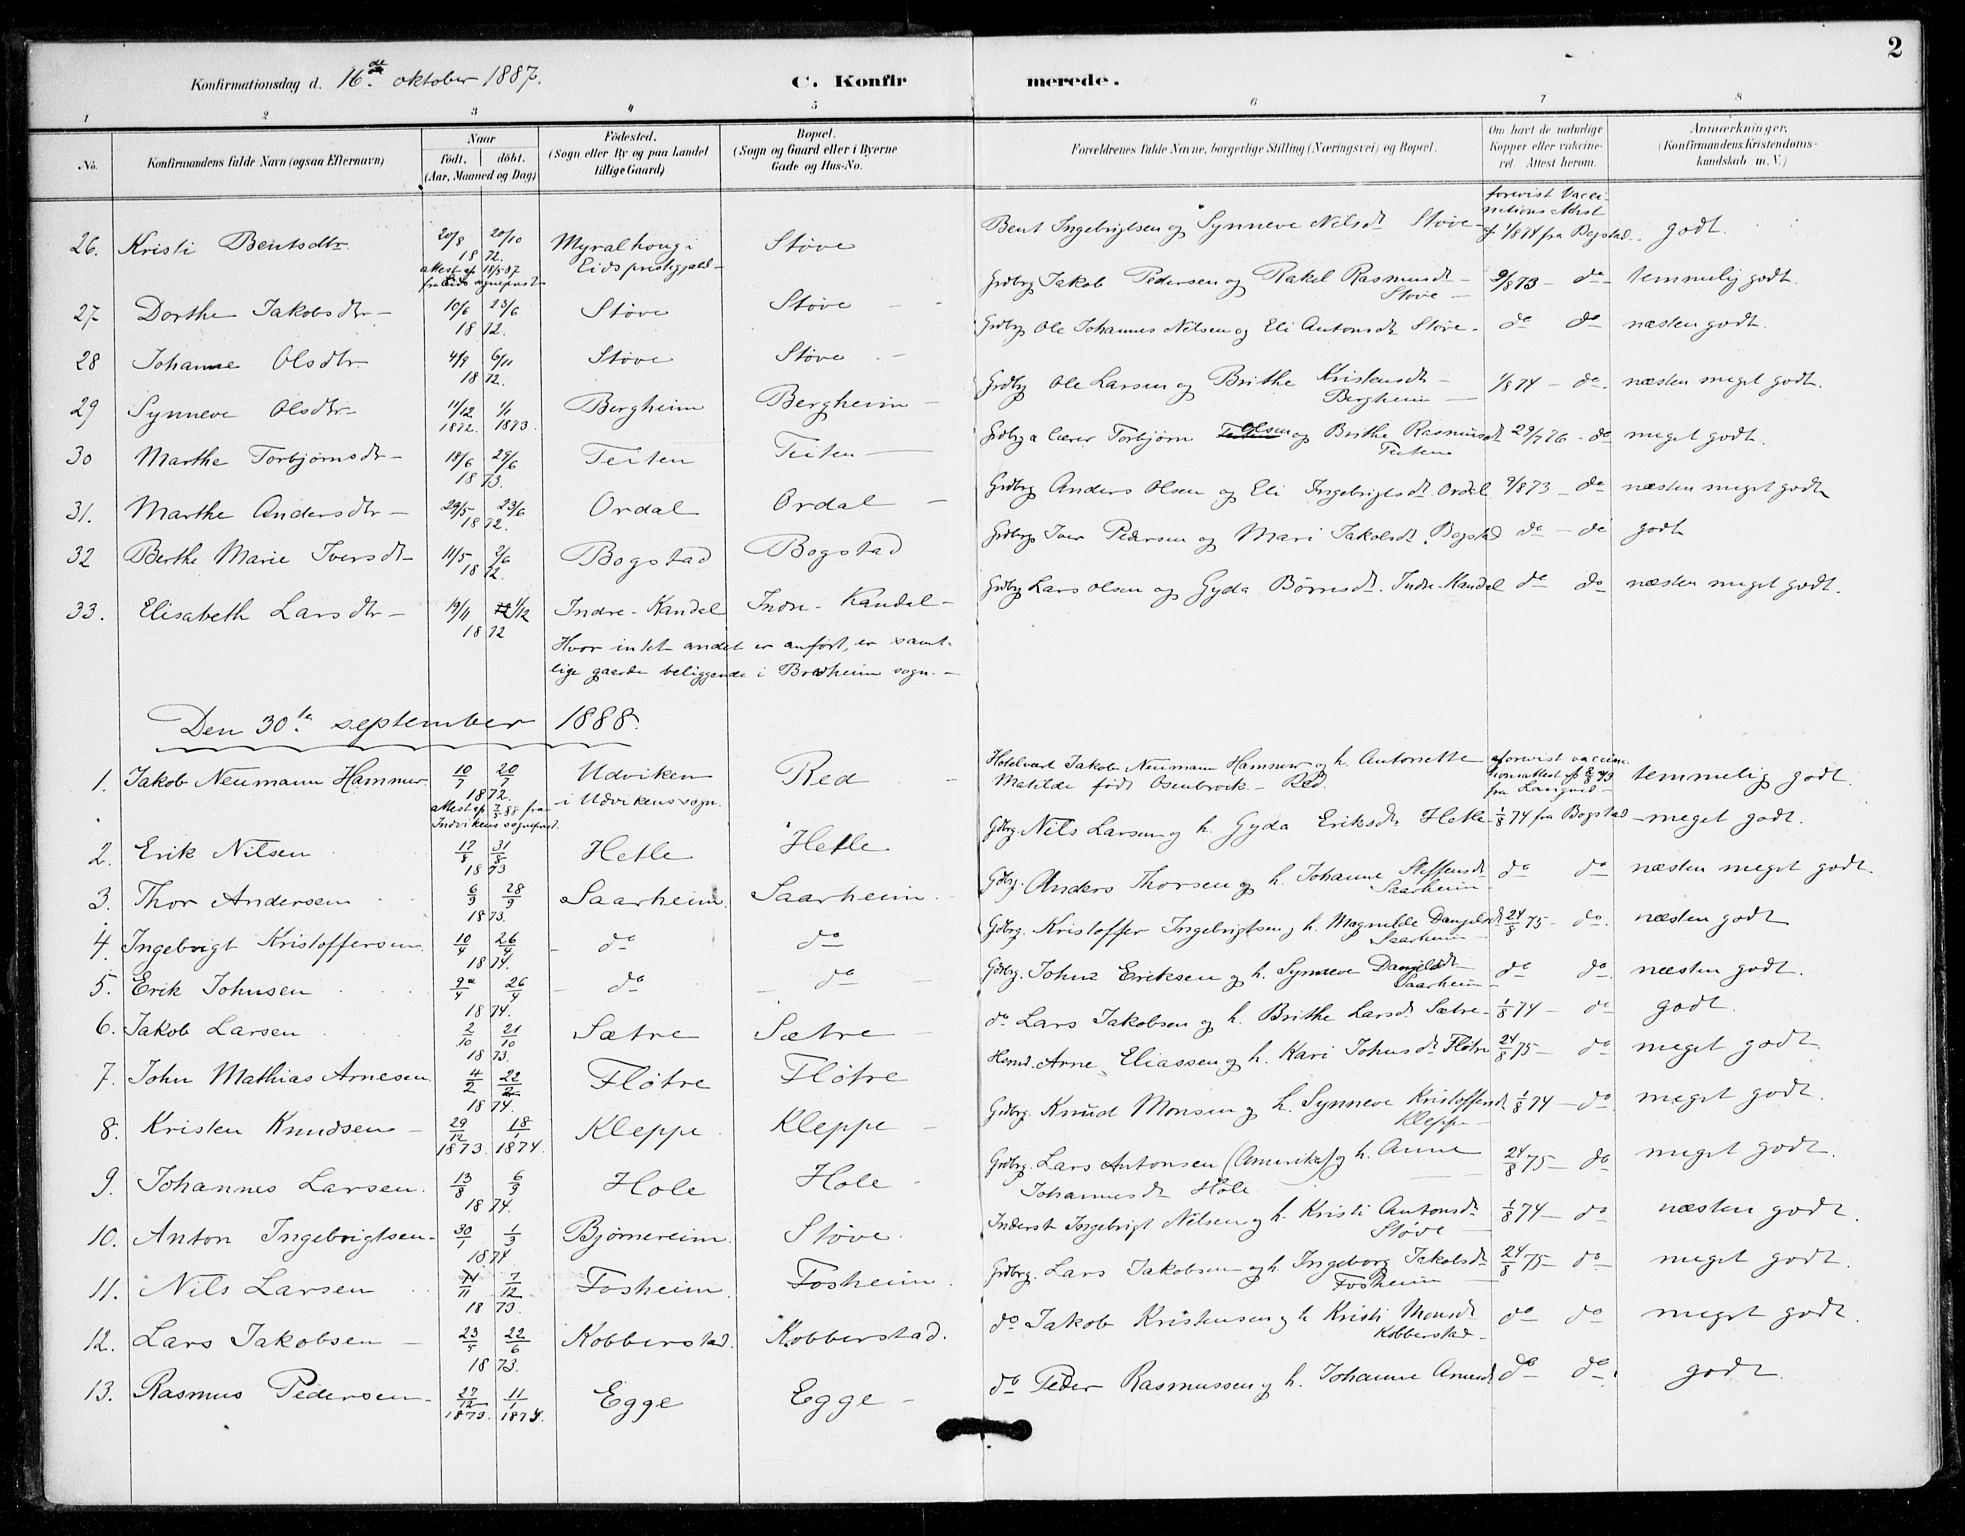 2
Konfirmationsdag d. 16de oktober 1887.
C. Konfirmerede.
1 2 3 4 5 6 7 8
No. Konfirmandens fulde Navn (ogsaa Efternavn) Naar födt. döbt. (Aar, Maaned og Dag) Födested. (Sogn eller By og paa Landet tillige Gaard) Bopæl. (Sogn og Gaard eller i Byerne Gade og Hus-No. Forældrenes fulde Navne, borgerlige Stilling (Næringsvei) og Bopæl. Om havt de naturlige Kopper eller vaccineret Attest herom. Anmærkninger. (Konfirmandens Kristendomskundskab m. V.)
26. Kristi Bentsdtr 20/8 20/10 1872. Myralhoug i Eids prestegjeld Støve Bent Ingebrigtsen og Synneve Nilsdt Støve forevist Vaccinations Attest af 1/8 74 fra Bogstad godt.
attest af 14/5 87 fra Eids sogneprest
27 Dorthe Jakobsdtr 10/6 23/6 1872. Støve Støve Grdbrg Jakob Pedersen og Rakel Rasmusdt Støve 9/8 73 do temmelig godt.
28 Johanne Olsdtr 4/9 6/11 1872. Støve Støve Grdbrg Ole Johannes Nilsen og Eli Antonsdt Støve do do næsten godt.
29 Synneve Olsdtr 11/12 1872. 1/1 1873. Bergheim Bergheim Grdbrg Ole Larsen og Brithe Kristensdtr Bergheim 1/8 74 do. næsten meget godt.
30 Marthe Torbjørnsdtr 18/6 29/6 1873. Teiten Teiten Grdbrg a lærer Torbjørn Olsen og Brithe Rasmusdt Teiten 29/7 76 do meget godt.
31. Marthe Andersdtr 29/5 23/6 1872. Ordal Ordal Grdbrg Anders Olsen og Eli Ingebrigtsdt Ordal 9/8 73 do næsten meget godt
32 Berthe Marie Iversdt 11/5 2/6 1872. Bogstad Bogstad Grdbrg Iver Pedersen og Mari Jakobsdt. Bogstad do do godt
33. Elisabeth Larsdtr 19/11 1/12 1872 Indre-Kandal Indre-Kandal Grdbrg Lars Olsen og Gyda Børnsdt. Indre-Kandal do do næsten meget godt.
Hvor intet andet er anført, er samt-
lige gaarde beliggende i Bredheim sogn.
Den 30te september 1888.
1. Jakob Neumann Hammer 10/7 20/7 1872. Udviken i Udvikens sogn. Red Hotelvært Jakob Neumann Hammer og h. Antonette Matilde født Osenbrock - Red. forevist vaccinationsattest af 2/8 73 fra temmelig godt.
attest af 7/5 88 fra Indvikens sogneprest.
2. Erik Nilsen 17/8 31/8 1873 Hetle Hetle Gdbrg. Nils Larsen og h. Gyda Eriksdt Hetle 1/8 74 fra Bogstad meget godt.
3. Thor Andersen 6/9 28/9 1873. Saarheim. Saarheim Gdbrg. Anders Thorsen og h. Johanne Steffensdt Saarheim do do næsten meget godt.
4. Ingebrigt Kristoffersen. 10/4 26/4 1874. do do Gdbrg. Kristoffer Ingebrigtsen og h. Magnilde Danielsdt Saarheim 24/8 75 do. næsten godt
5. Erik Johnsen 9/4 26/4 1874. do do Gdbrg. John Eriksen og h. Synneve Danielsdt Saarheim do do. næsten godt.
6. Jakob Larsen 2/10 21/10 1873. Sætre Sætre do Lars Jakobsen og h. Brithe Larsdt Sætre 1/8 74 do godt.
7. John Mathias Arnesen 4/2 22/2 1874. Fløtre Fløtre Hsmd. Arne Eliassen og h. Kari Johnsdt Fløtre 24/8 75 do meget godt.
8. Kristen Knudsen 29/12 1873. 18/1 1874. Kleppe Kleppe Grdbrg. Knud Monsen og h. Synneve Kristoffersdt Kleppe 1/8 74 do. meget godt
9. Johannes Larsen. 13/8 6/9 1874. Hole Hole Grdbrg. Lars Antonsen (Amerika) og h. Anne Johannesdt Hole 24/8 75 do meget godt.
10. Anton Ingebrigtsen 30/1 1/3 1874 Bjørnereim. Støve. Inderst Ingebrigt Nilsen og h. Kristi Antonsdt Støve 1/8 74 do næsten godt.
11. Nils Larsen 14/11 7/12 1873. Fosheim. Fosheim. Grdbrg. Lars Jakobsen og h. Ingeborg Jakobsdt Fosheim 24/8 75 do meget godt.
12. Lars Jakobsen 23/5 22/6 1873. Kobberstad. Kobberstad. do Jakob Kristensen og h Kristi Monsdt Kobberstad do do meget godt.
13. Rasmus Pedersen 27/12 1873. 11/1 1874. Egge Egge do Peder Rasmussen og h. Johanne Arnesdt do do. godt.